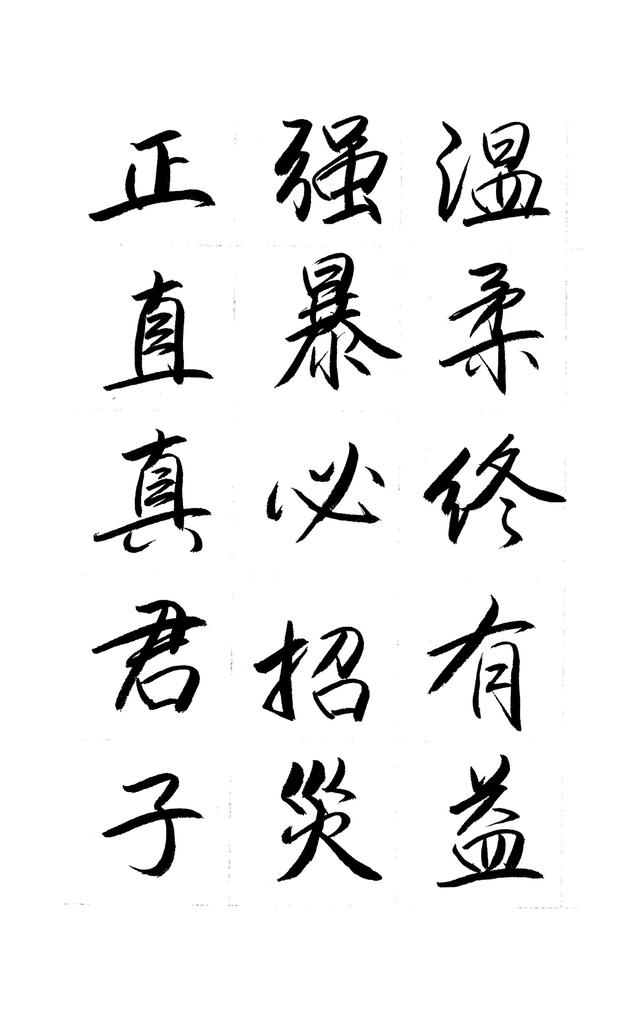 温柔终有益
强暴必招災
正直真君子